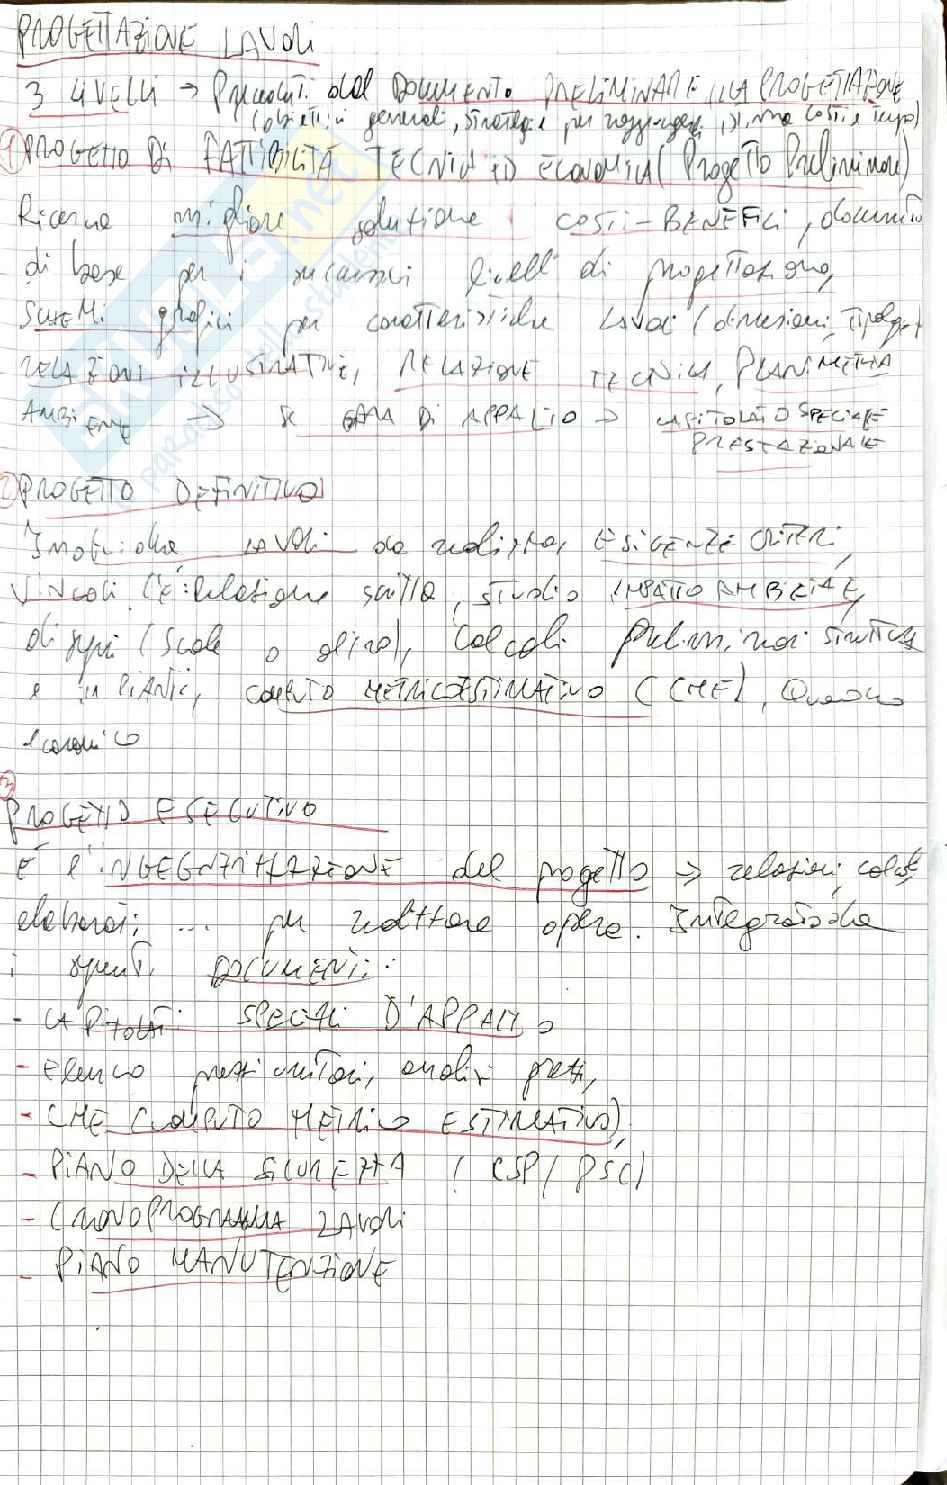 PROGETTAZIONE LAVORI
3 LIVELLI → Preceduti dal DOCUMENTO PRELIMINARE ALLA PROGETTAZIONE
(obiettivi generali, strategie per raggiungerli, stima costi e tempo)
1 PROGETTO DI FATTIBILITÀ TECNICA ED ECONOMICA (Progetto Preliminare)
Ricerca migliore soluzione COSTI-BENEFICI, documento
di base per i successivi livelli di progettazione,
SCHEMI grafici per caratteristiche LAVORI (dimensioni, tipologia)
RELAZIONI ILLUSTRATIVE, RELAZIONE TECNICA, PLANIMETRIA
AMBIENTE → SE GARA DI APPALTO → CAPITOLATO SPECIALE
PRESTAZIONALE
2 PROGETTO DEFINITIVO
Individua LAVORI da realizzare, ESIGENZE CRITERI,
VINCOLI C'è: Relazione scritta, STUDIO IMPATTO AMBIENTALE,
disegni (scale o altro), CALCOLI Preliminari STRUTTURE
e IMPIANTI, COMPUTO METRICO ESTIMATIVO (CME), Quadro
economico
3
PROGETTO ESECUTIVO
È l'INGEGNERIZZAZIONE del progetto → relazioni, calcoli,
elaborati, ... per realizzare opere. Integrato da
i seguenti DOCUMENTI:
- CAPITOLATI SPECIALI D'APPALTO
- Elenco prezzi unitari, analisi prezzi,
- CME (COMPUTO METRICO ESTIMATIVO),
- PIANO DELLA SICUREZZA (CSP/PSC)
- CRONOPROGRAMMA LAVORI
- PIANO MANUTENZIONE
skuola.net
paradiso dello studente